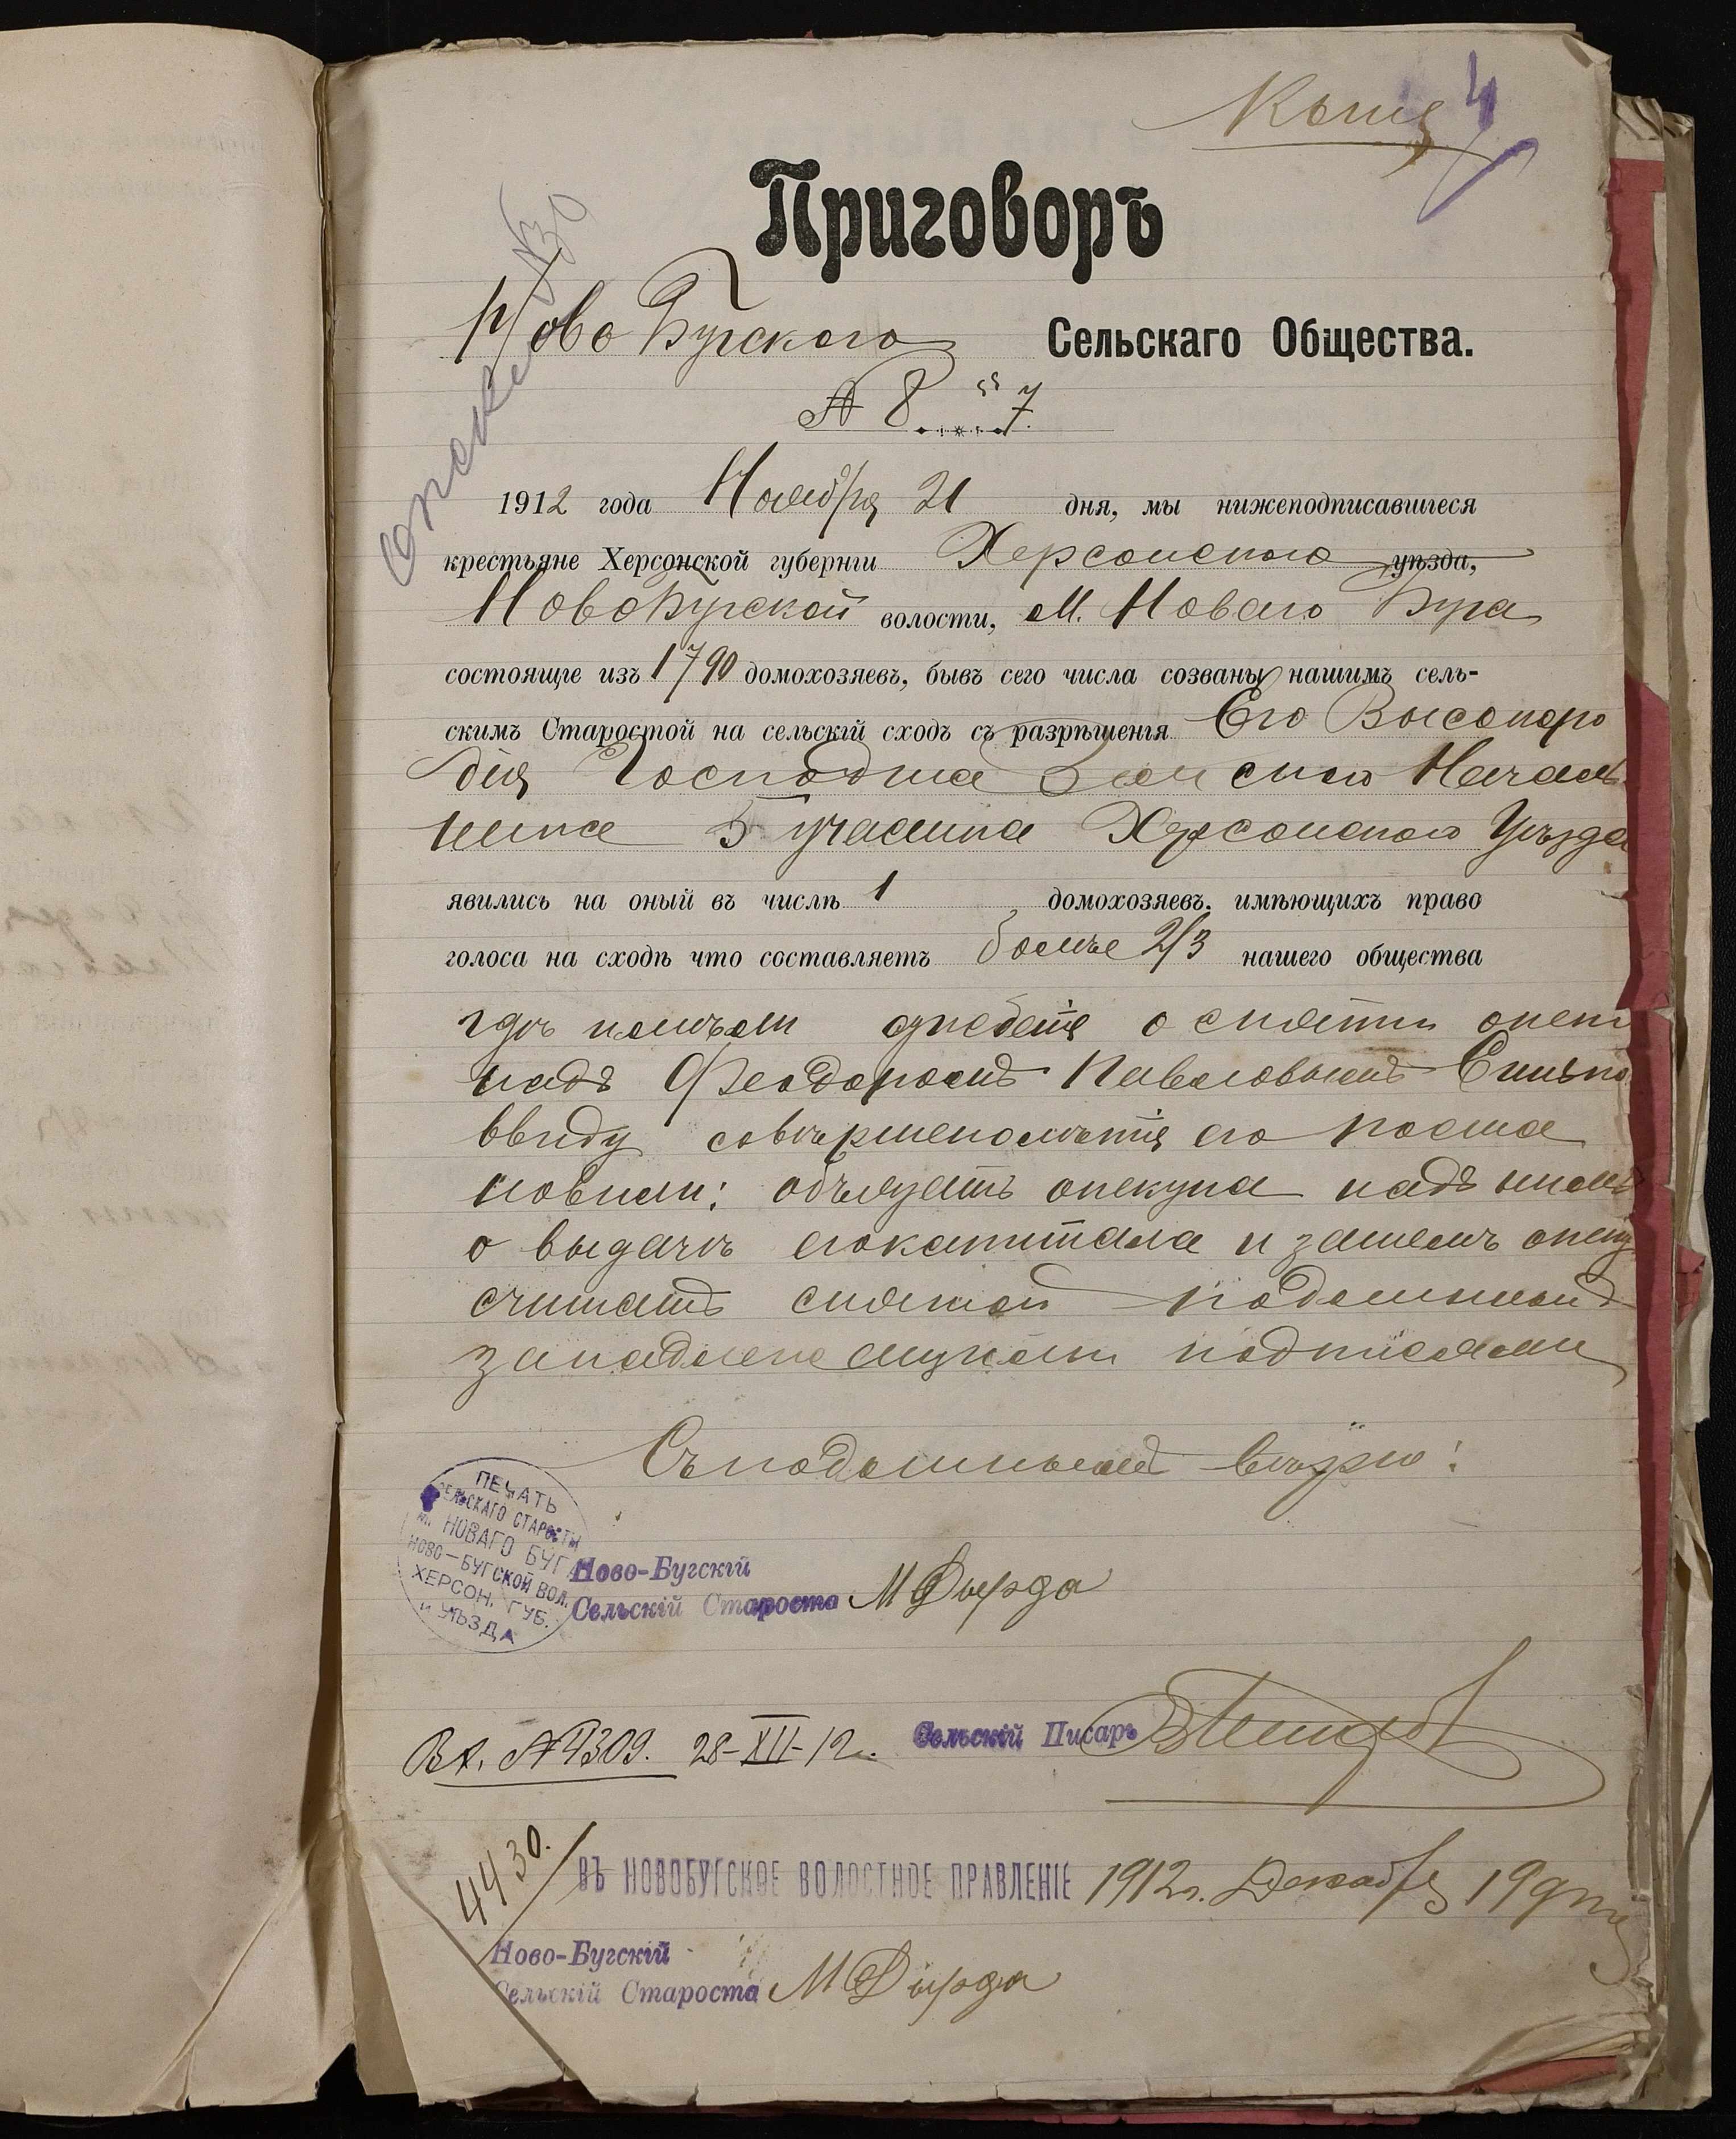 Копія 4
Приговоръ
Ново Бугского Сельскаго Общества.
№ 87.
1912 года Ноября 21 дня, мы нижеподписавшіеся
крестьяне Херсонской губерніи Херсонского уѣзда,
НовоБугской волости, М. Новаго Буга
состоящіе изъ 1790 домохозяевъ, бывъ сего числа созваны нашимъ сель-
скимъ Старостой на сельскій сходъ съ разрѣшенія Его Высокоро
дія Господина Земскаго Началь
ника 5 участка Херсонского Уѣзда
явились на оный въ числѣ 1 домохозяевъ, имѣющихъ право
голоса на сходѣ что составляетъ болѣе 2/3 нашего общества
гдѣ имѣли сужденіе о снятіи опек
надъ Феодоромъ Павловымъ
ввиду совѣршенолѣтія его поста
новили: обязать опекуна надъ нимъ
о выдачѣ его капитала и засемъ опеку
считать снятой подлинный
за надлежащими подписями
Съ подлиннымъ вѣрно:
ПЕЧАТЬ
СЕЛЬСКАГО СТАРОСТЫ
М. НОВАГО БУГА
НОВО-БУГСКОЙ ВОЛ.
ХЕРСОН. ГУБ.
И УѢЗДА
Ново-Бугскій
Сельскій Староста МДырда
Сельскій Писарь
Вх. №4309. 28-XII-12г.
4430.
ВЪ НОВОБУГСКОЕ ВОЛОСТНОЕ ПРАВЛЕНІЕ 1912г. Декабря 19 дня
Ново-Бугскій
Сельскій Староста МДырда